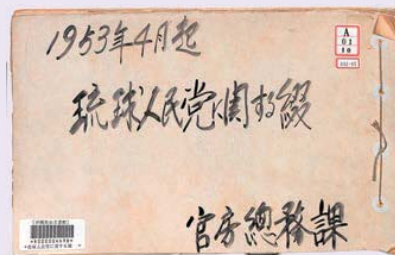 1953年4月起
琉球人民党ニ関する綴
官房總務課
A
01
10